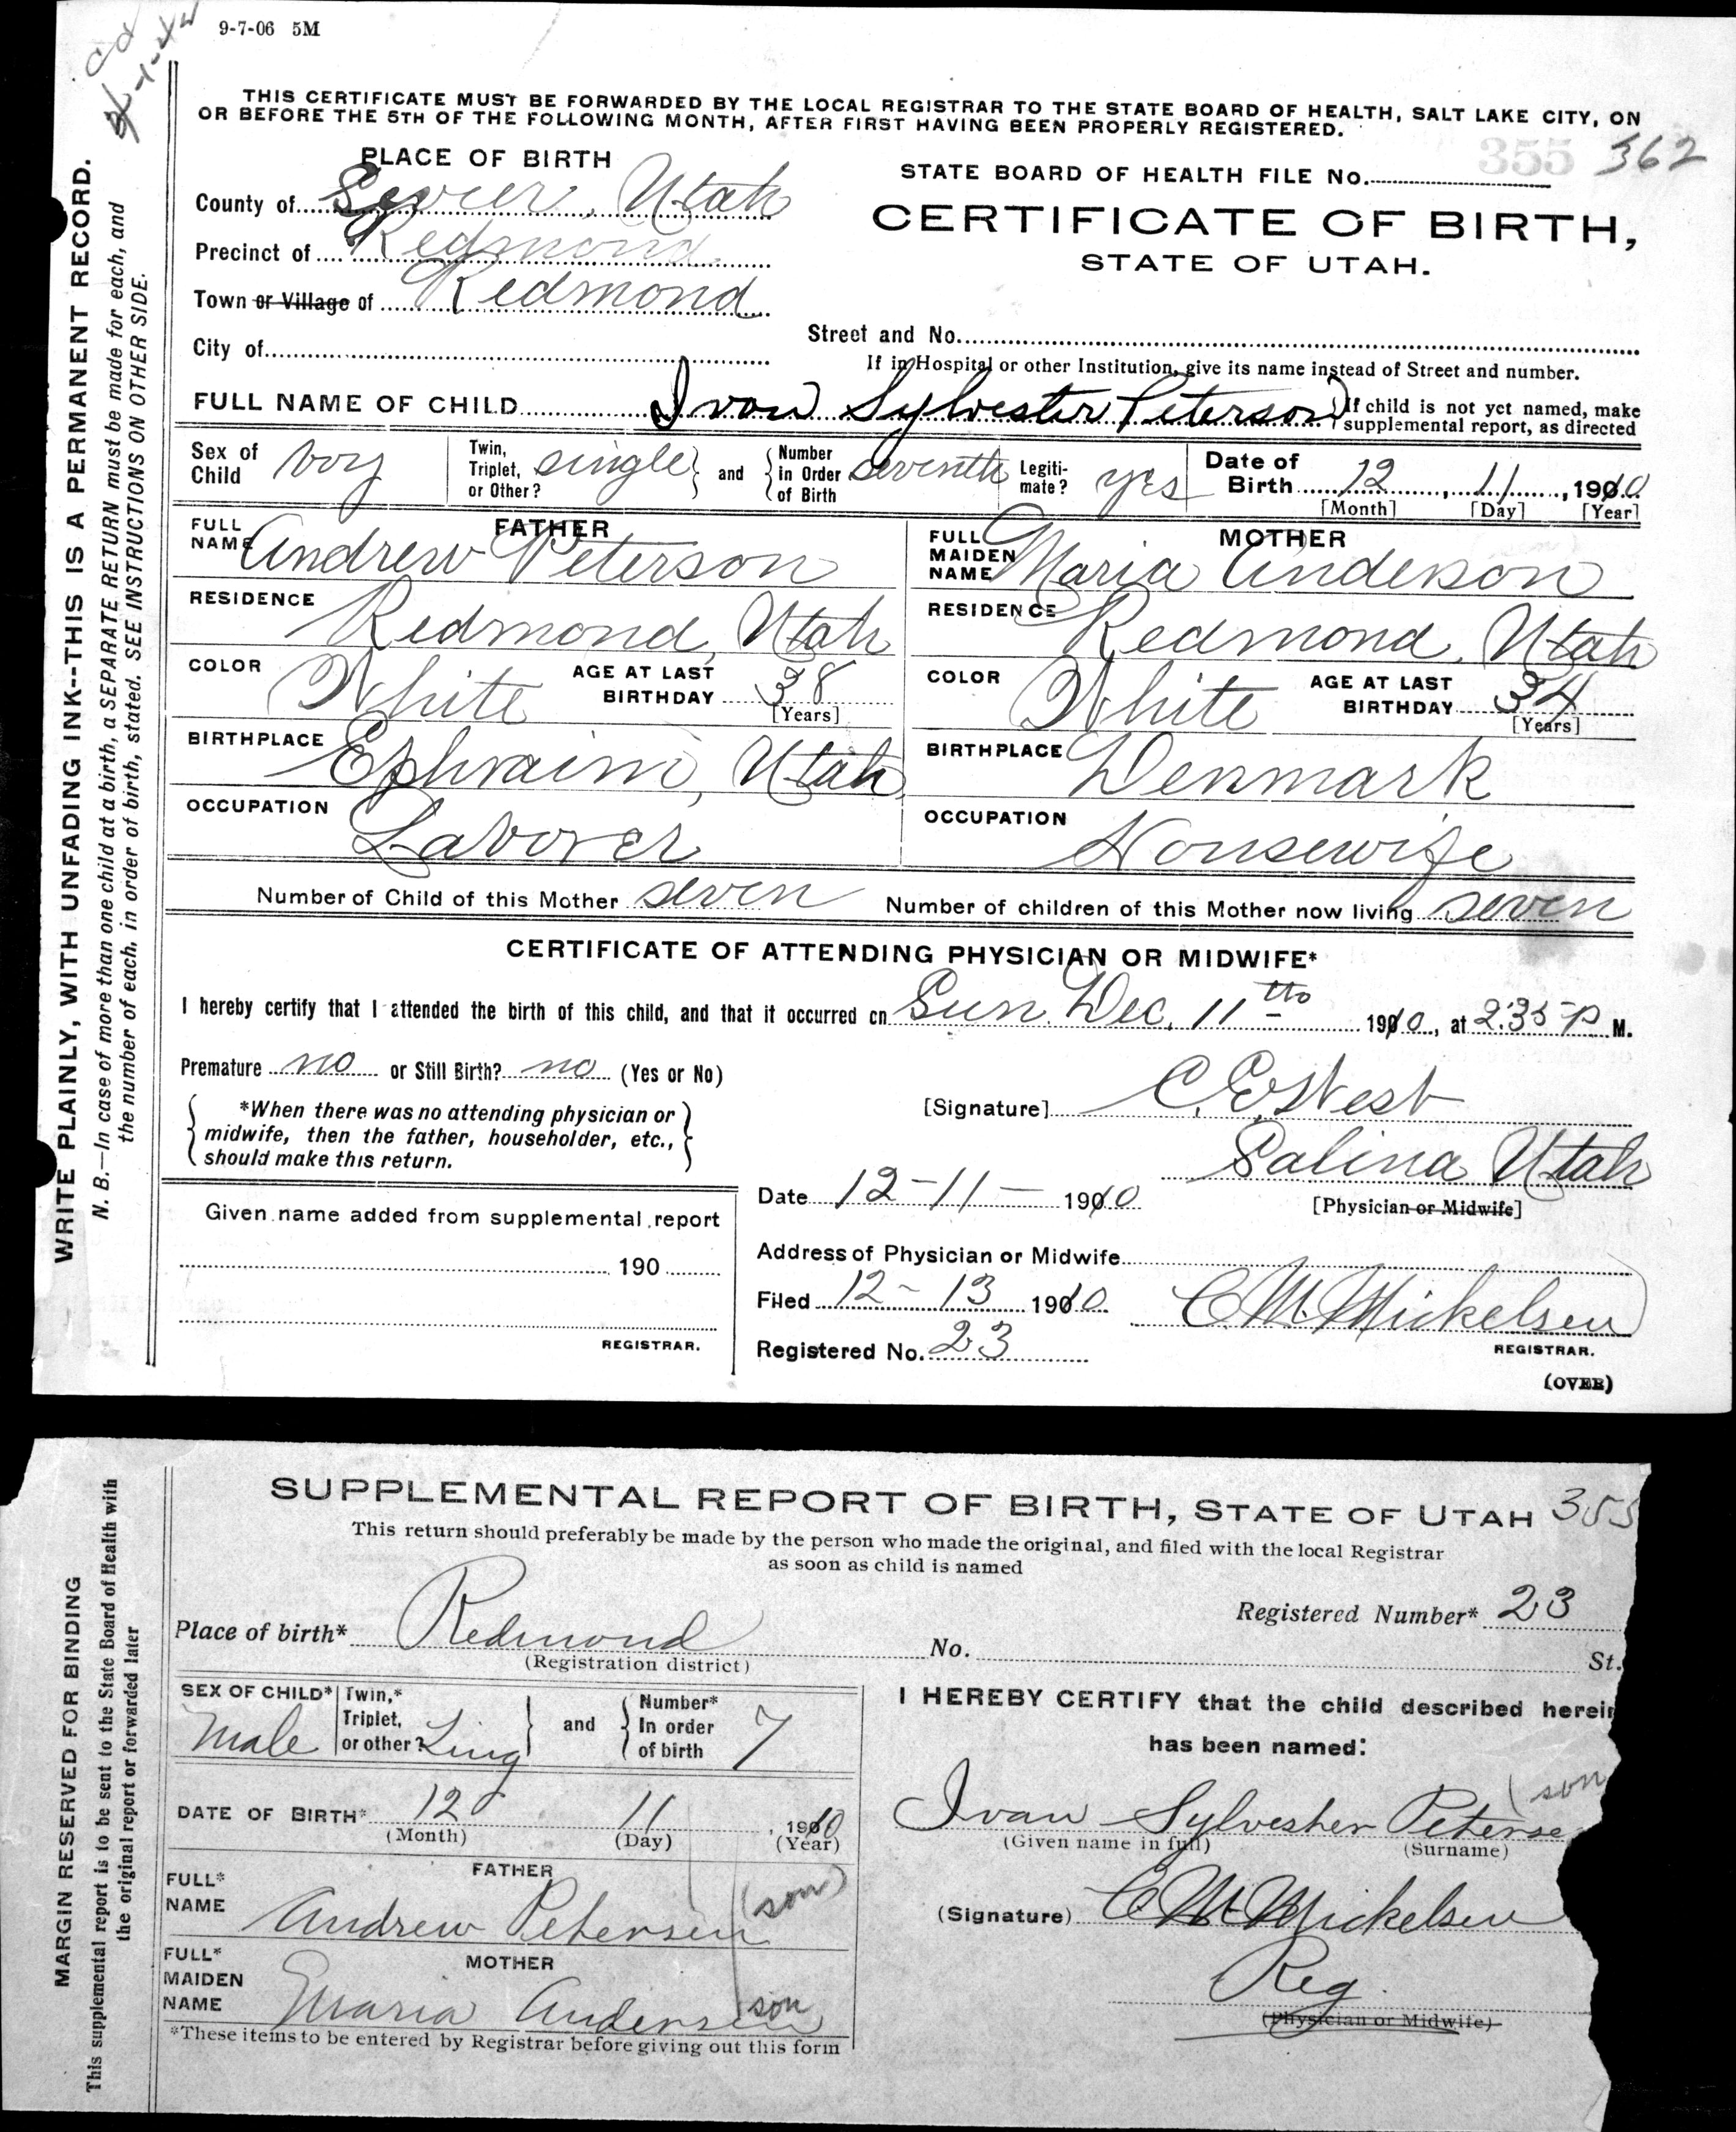 9-7-06 5M
THIS CERTIFICATE MUST BE FORWARDED BY THE LOCAL REGISTRAR TO THE STATE BOARD OF HEALTH, SALT LAKE CITY, ON
OR BEFORE THE 5TH OF THE FOLLOWING MONTH, AFTER FIRST HAVING BEEN PROPERLY REGISTERED.
355 362
PLACE OF BIRTH
STATE BOARD OF HEALTH FILE No.
County of Sevier, Utah
CERTIFICATE OF BIRTH,
STATE OF UTAH.
Precinct of Redmond
Town or Village of Redmond
City of
Street and No.
If in Hospital or other Institution, give its name instead of Street and number.
FULL NAME OF CHILD Ivan Sylvester Peterson
If child is not yet named, make
supplemental report, as directed
Sex of Child boy
Twin, Triplet, or Other? single and Number in Order of Birth seventh
Legitimate? yes
Date of Birth 12, 11, 1910
[Month] [Day] [Year]
FATHER
FULL NAME Andrew Peterson
RESIDENCE Redmond, Utah
COLOR White AGE AT LAST BIRTHDAY 38
[Years]
BIRTHPLACE Ephraim, Utah
OCCUPATION Laborer
MOTHER
FULL MAIDEN NAME Maria Anderson
RESIDENCE Redmond, Utah
COLOR White AGE AT LAST BIRTHDAY 34
[Years]
BIRTHPLACE Denmark
OCCUPATION Housewife
Number of Child of this Mother seven Number of children of this Mother now living seven
CERTIFICATE OF ATTENDING PHYSICIAN OR MIDWIFE*
I hereby certify that I attended the birth of this child, and that it occurred on Sun. Dec. 11th 1910, at 2:35 P M.
Premature no or Still Birth? no (Yes or No)
*When there was no attending physician or
midwife, then the father, householder, etc.,
should make this return.
[Signature] C. E. West
Salina Utah
[Physician or Midwife]
Date 12-11- 1910
Given name added from supplemental report
190
REGISTRAR.
Address of Physician or Midwife
Filed 12-13 1910 C M Mickelsen
Registered No. 23
REGISTRAR.
(OVER)
WRITE PLAINLY, WITH UNFADING INK--THIS IS A PERMANENT RECORD.
N. B.—In case of more than one child at a birth, a SEPARATE RETURN must be made for each, and
the number of each, in order of birth, stated. SEE INSTRUCTIONS ON OTHER SIDE.
SUPPLEMENTAL REPORT OF BIRTH, STATE OF UTAH 355
This return should preferably be made by the person who made the original, and filed with the local Registrar
as soon as child is named
Registered Number* 23
Place of birth* Redmond No. St.
(Registration district)
SEX OF CHILD* Male
Twin,* Triplet, or other? Sing and Number* In order of birth 7
DATE OF BIRTH* 12 11, 1910
(Month) (Day) (Year)
FATHER
FULL* NAME Andrew Petersen (son)
MOTHER
FULL* MAIDEN NAME Maria Andersen son
*These items to be entered by Registrar before giving out this form
I HEREBY CERTIFY that the child described herein
has been named:
(son
Ivan Sylvester Peterse
(Given name in full) (Surname)
(Signature) C M Mickelsen
Reg.
(Physician or Midwife)
MARGIN RESERVED FOR BINDING
This supplemental report is to be sent to the State Board of Health with
the original report or forwarded later